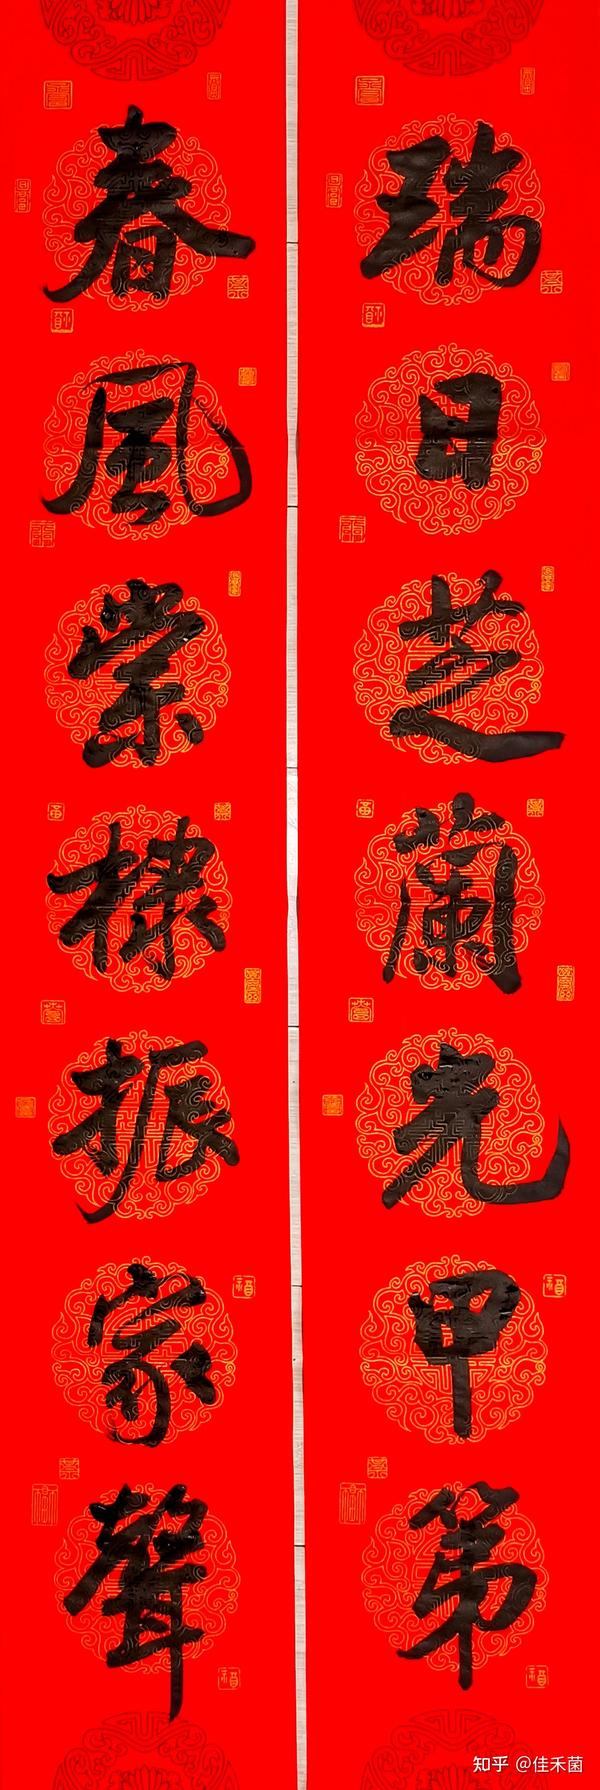 瑞日芝蘭光甲第
春風棠棣振家聲
知乎 @佳禾菌